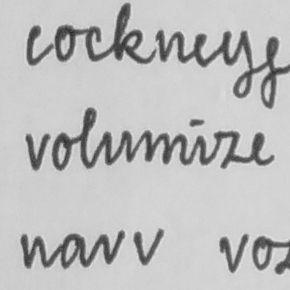 cockneys
volumize
navv